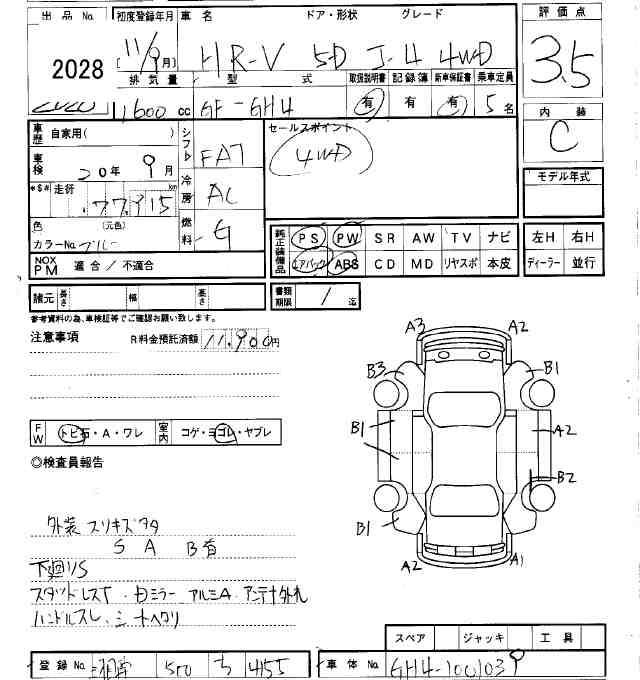 出品No. 初度登録年月 車名 ドア・形状 グレード 評価点
2028 11/9月) HR-V 5D J-4 4WD 3.5
排気量 型式 取扱説明書 記録簿 新車保証書 乗車定員
1600cc GF-GH4 有 有 有 5名
内装
C
車歴 自家用( ) シフト FAT セールスポイント
4WD
車検 20年9月 冷房 AC モデル年式
*$# 走行 77,915km
色 (元色) 燃料 G
カラーNo.
純正装備品 PS PW SR AW TV ナビ 左H 右H
エアバック ABS CD MD リヤスポ 本皮 ディーラー 並行
NOX PM 適合/不適合
諸元 長さ 幅 高さ 書類期限 / 迄
参考資料の為、車検証等でご確認お願い致します。
注意事項 R料金預託済額 11,900円
A3 A2
B3 B1
B1 A2
B2
B1
A2 A1
FW トビ石・A・ワレ 室内 コゲ・ヨゴレ・ヤブレ
◎検査員報告
外装 スリキズ
S A B有
下廻りS
ミラー アルミA アンテナ外れ
ハンドルスレ
スペア ジャッキ 工具
登録No. 500 ち 4155 車体No. GH4-1001039